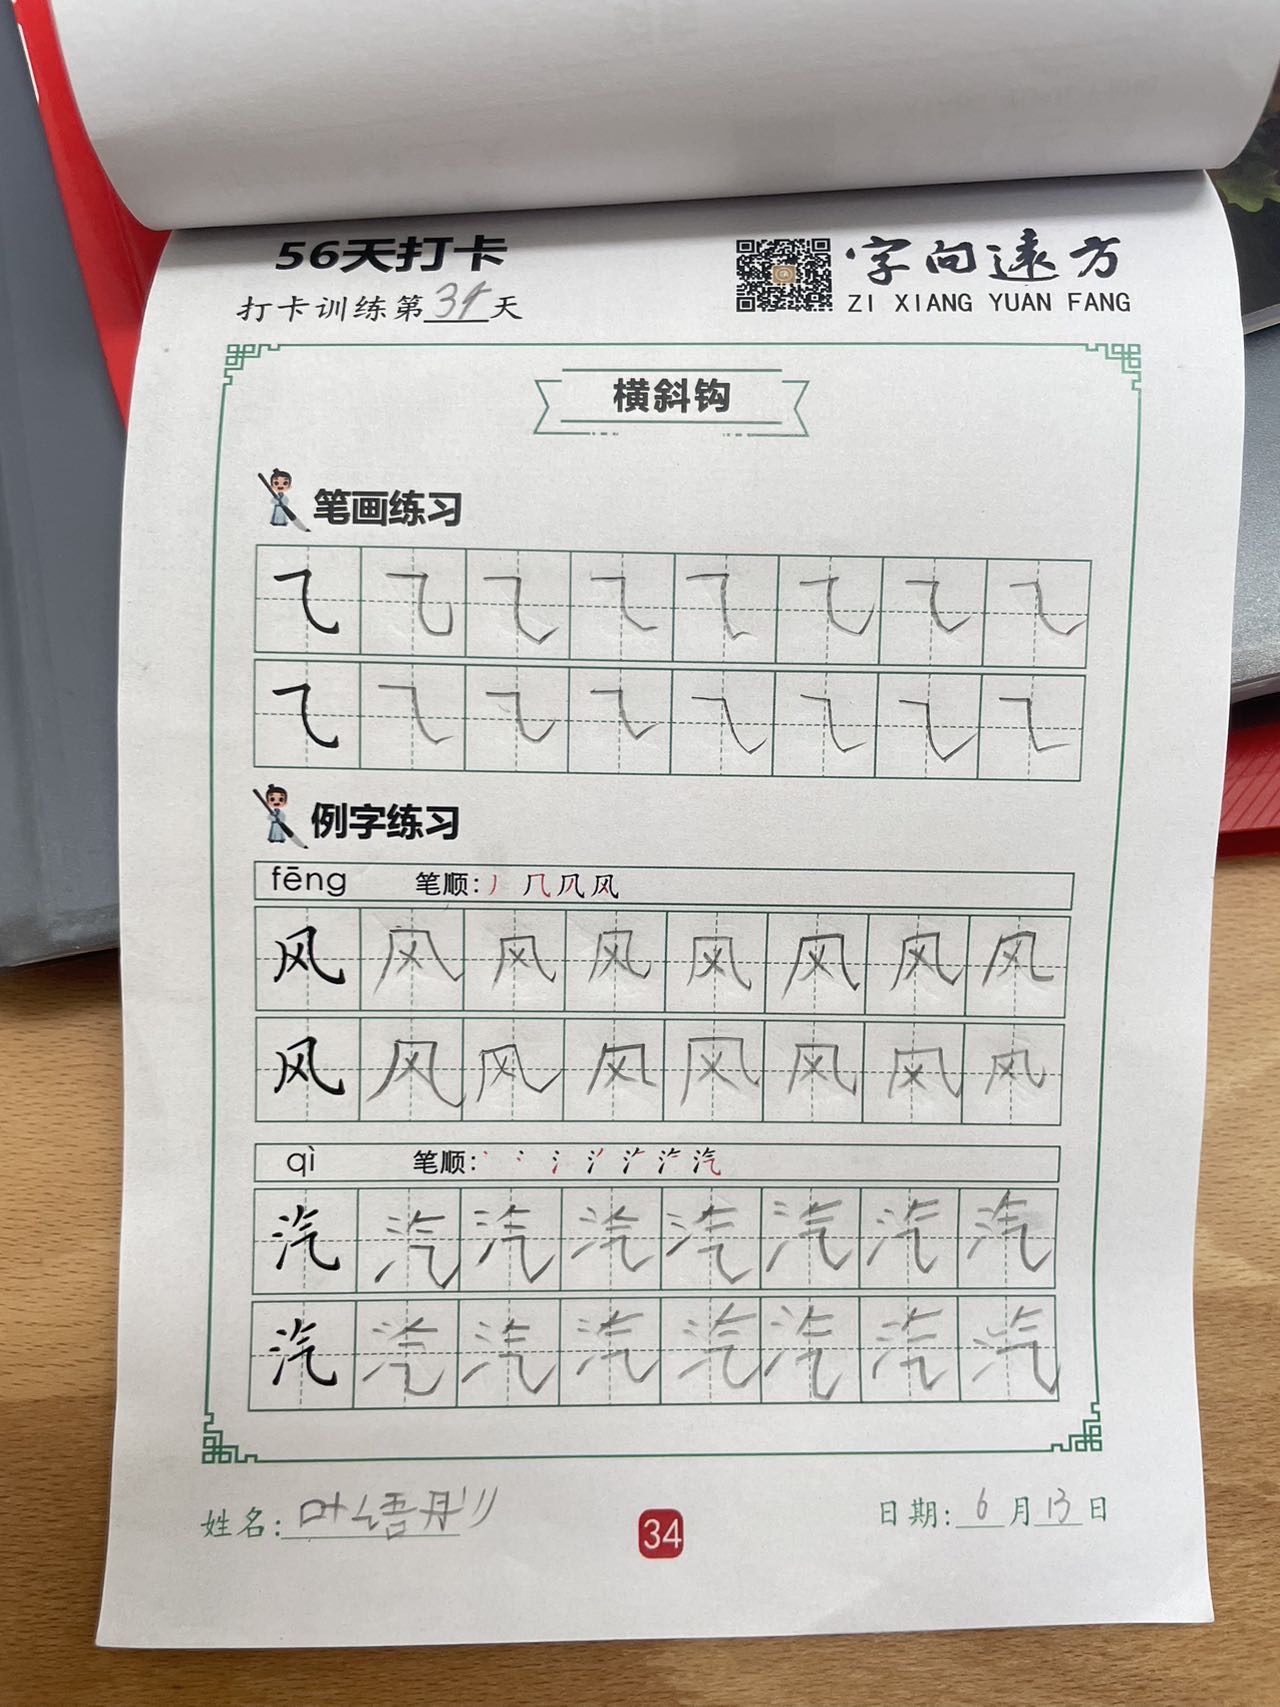 56天打卡
打卡训练第34天
字向远方
ZI XIANG YUAN FANG
横斜钩
笔画练习
⺄ ⺄ ⺄ ⺄ ⺄ ⺄ ⺄ ⺄
⺄ ⺄ ⺄ ⺄ ⺄ ⺄ ⺄ ⺄
例字练习
fēng 笔顺:
风 风 风 风 风 风 风 风
风 风 风 风 风 风 风 风
qì 笔顺:
汽 汽 汽 汽 汽 汽 汽 汽
汽 汽 汽 汽 汽 汽 汽 汽
姓名:叶语彤
34
日期:6月13日